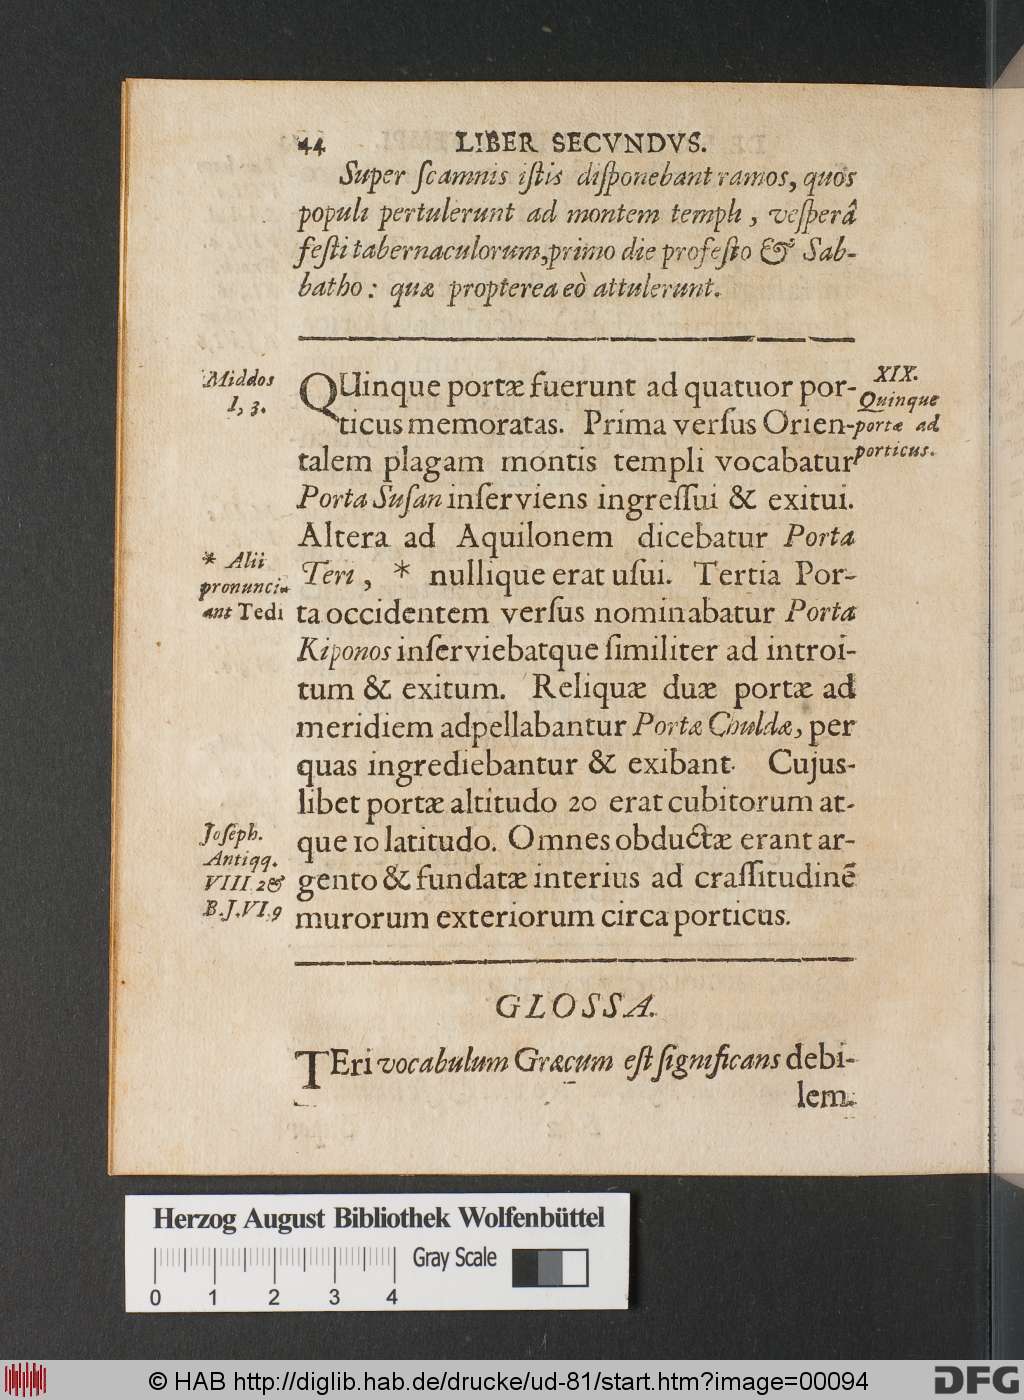 44 LIBER SECVNDVS.
Super ſcamnis iſtis diſponebant ramos, quos
populi pertulerunt ad montem templi, veſperâ
feſti tabernaculorum, primo die profeſto & Sab-
batho: quæ propterea eò attulerunt.
Middos
I, 3.
QUinque portæ fuerunt ad quatuor por-
ticus memoratas. Prima verſus Orien-
talem plagam montis templi vocabatur
Porta Suſan inſerviens ingreſſui & exitui.
Altera ad Aquilonem dicebatur Porta
Teri, * nullique erat uſui. Tertia Por-
ta occidentem verſus nominabatur Porta
Kiponos inſerviebatque ſimiliter ad introi-
tum & exitum. Reliquæ duæ portæ ad
meridiem adpellabantur Portæ Chuldæ, per
quas ingrediebantur & exibant. Cujus-
libet portæ altitudo 20 erat cubitorum at-
que 10 latitudo. Omnes obductæ erant ar-
gento & fundatæ interius ad craſſitudinē
murorum exteriorum circa porticus.
XIX.
Quinque
portæ ad
porticus.
* Alii
pronunci-
ant Tedi
Joſeph.
Antiqq.
VIII 2 &
B. J. VI. 9
GLOSSA.
TEri vocabulum Græcum eſt ſignificans debi-
lem.
Herzog August Bibliothek Wolfenbüttel
Gray Scale
0 1 2 3 4
© HAB http://diglib.hab.de/drucke/ud-81/start.htm?image=00094
DFG